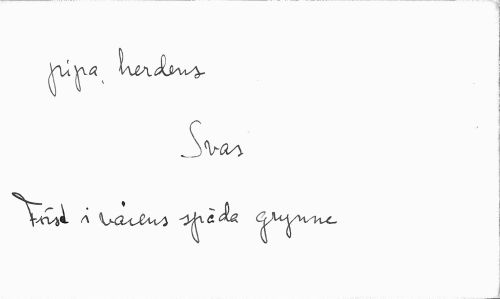 pipa, herdens
Svas
Först i vårens späda grynne